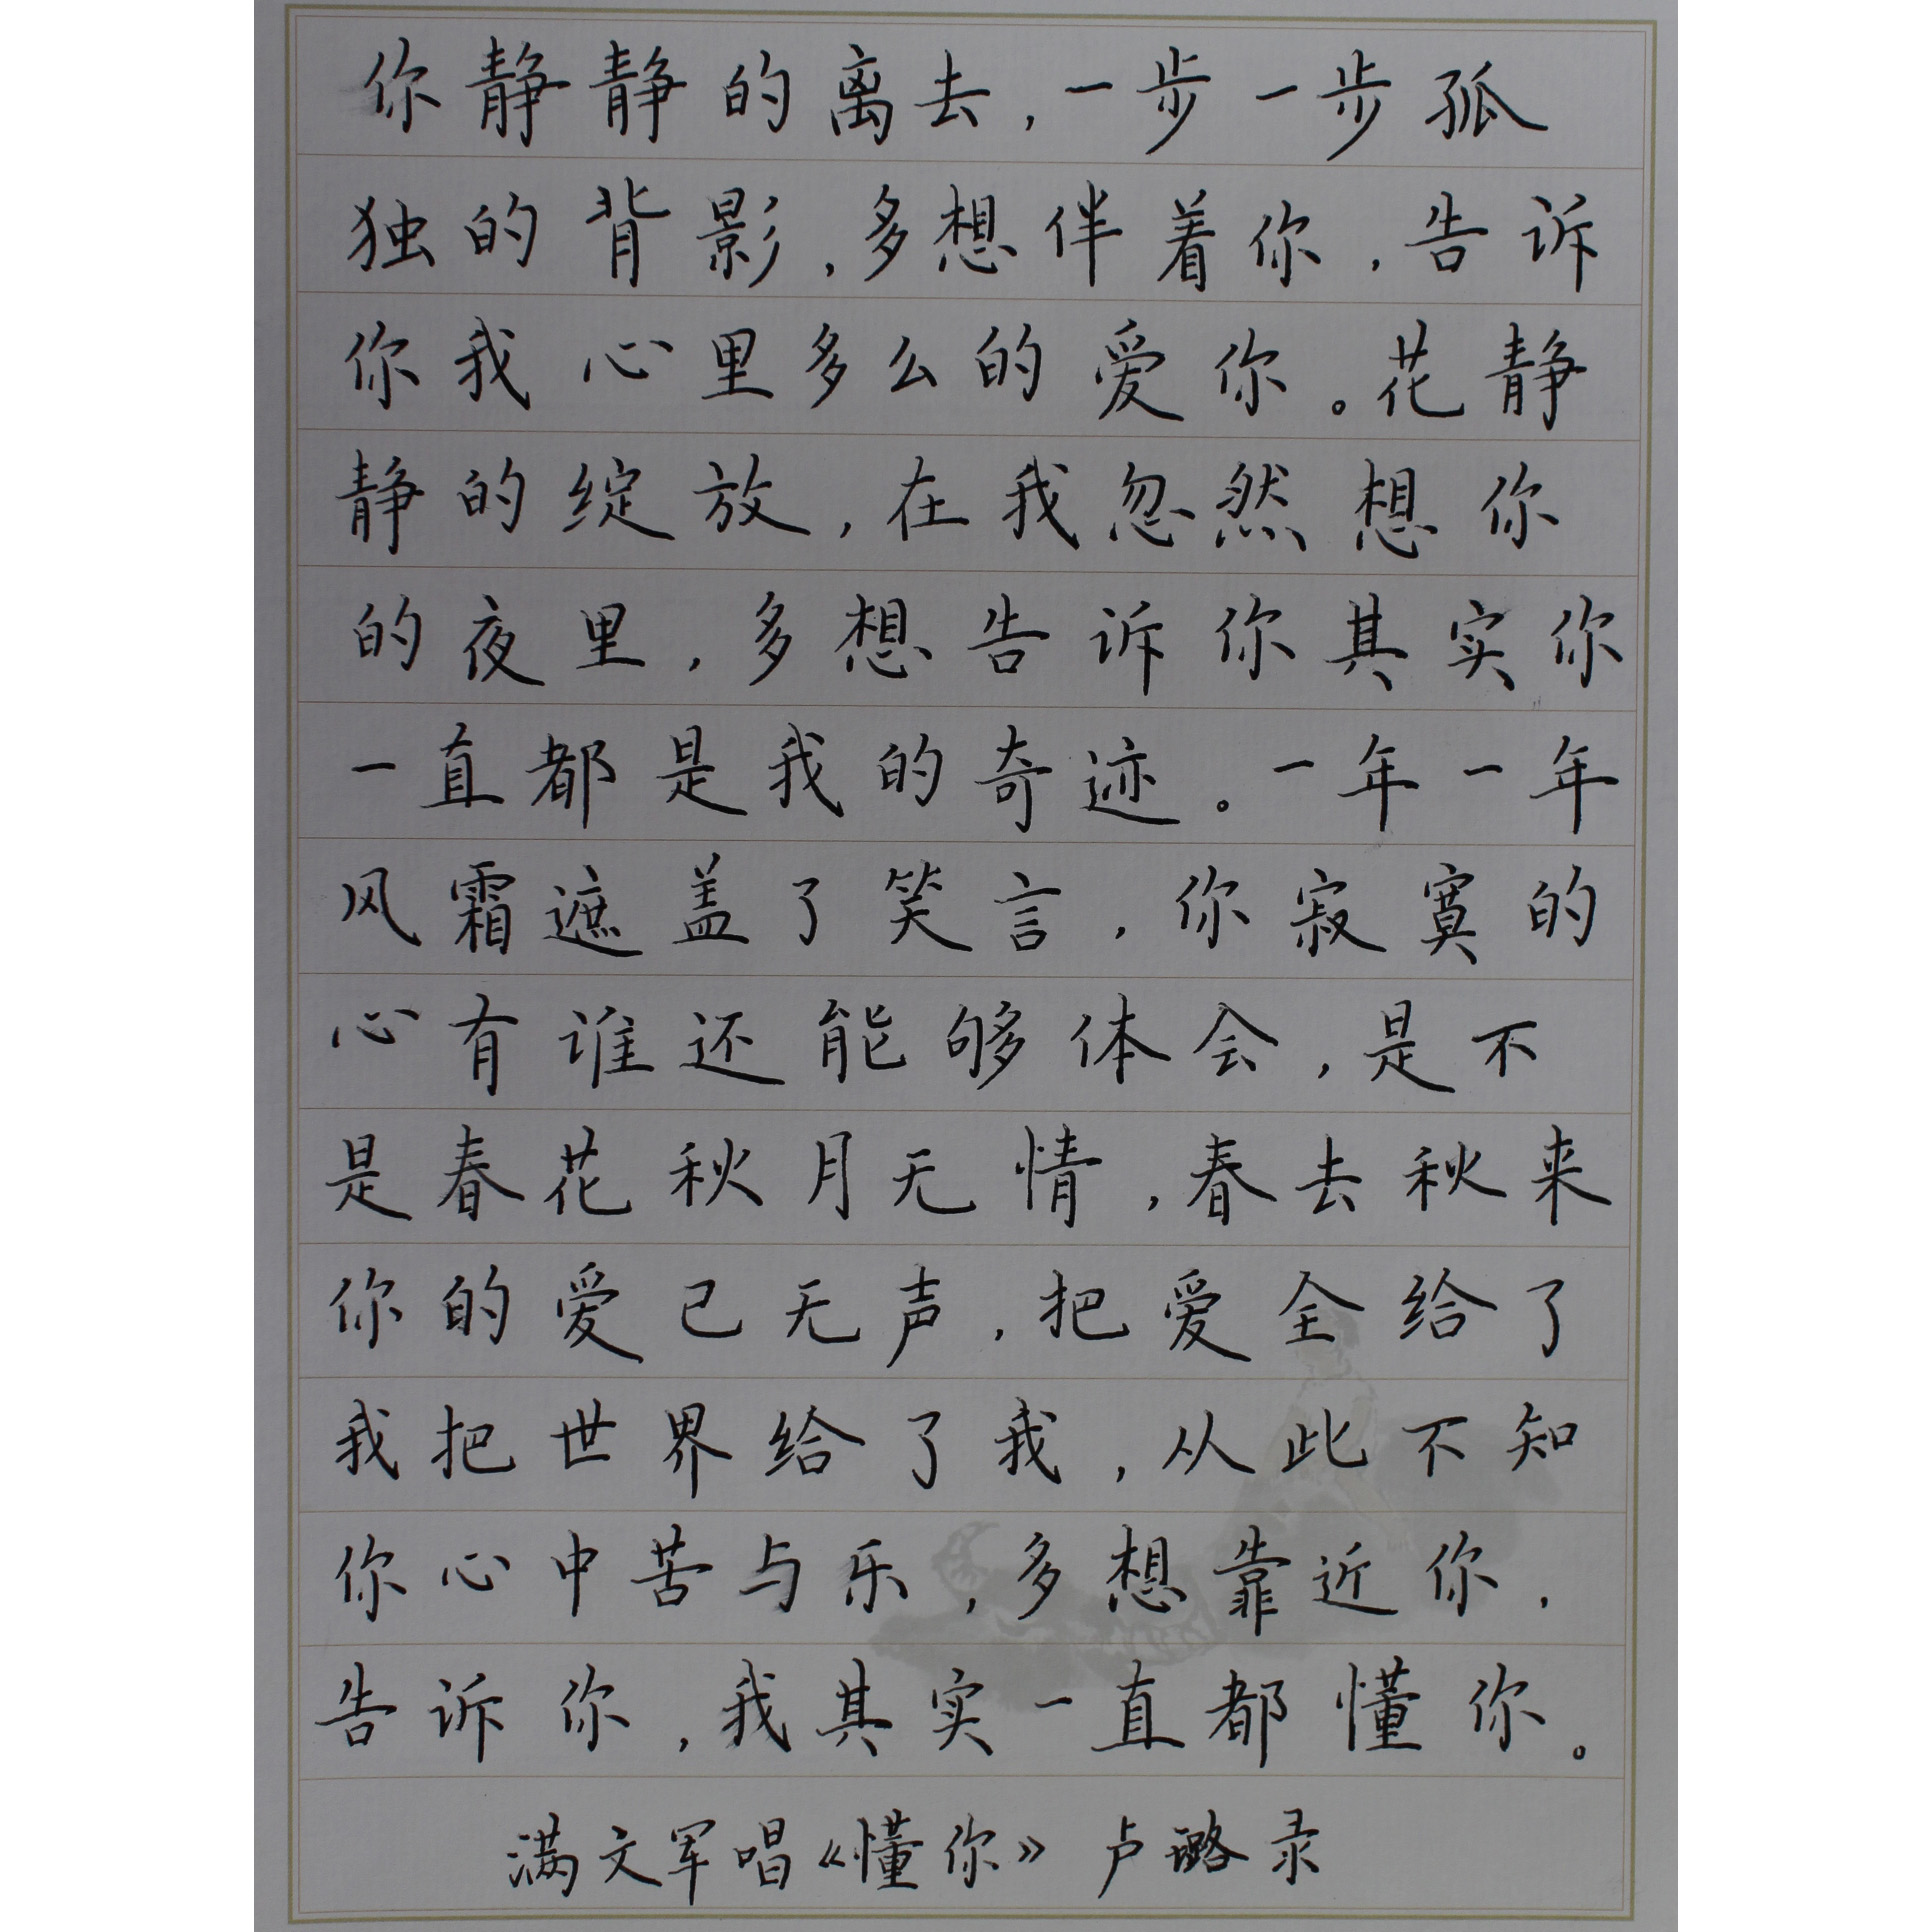 你静静的离去，一步一步孤
独的背影，多想伴着你，告诉
你我心里多么的爱你。花静
静的绽放，在我忽然想你
的夜里，多想告诉你其实你
一直都是我的奇迹。一年一年
风霜遮盖了笑言，你寂寞的
心有谁还能够体会，是不
是春花秋月无情，春去秋来
你的爱已无声，把爱全给了
我把世界给了我，从此不知
你心中苦与乐，多想靠近你，
告诉你，我其实一直都懂你。
满文军唱《懂你》 卢璐录